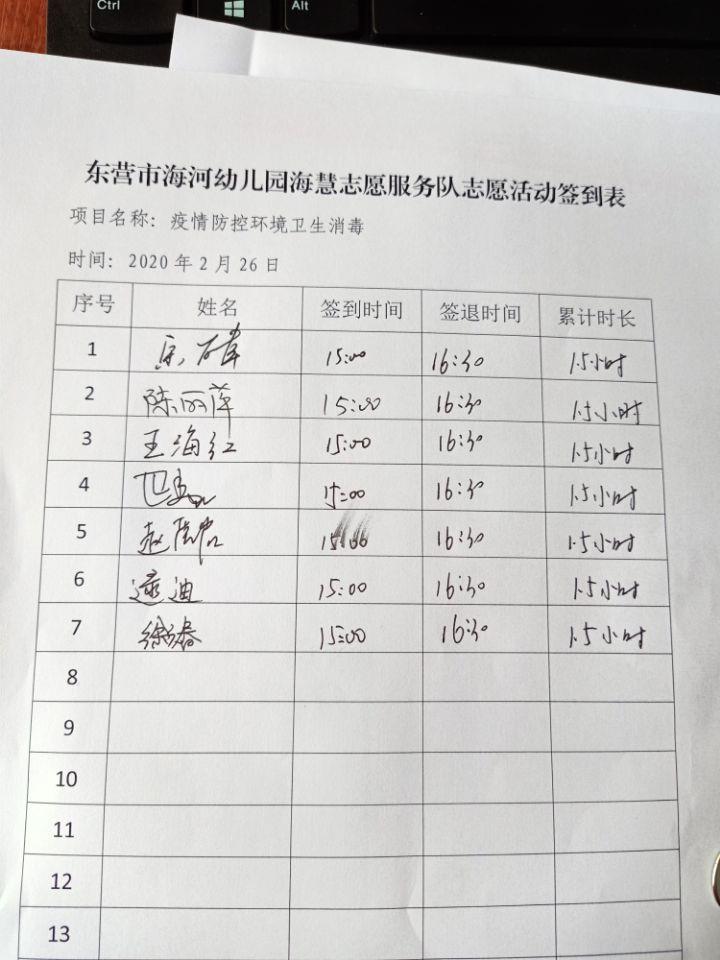 Ctrl
Alt
东营市海河幼儿园海慧志愿服务队志愿活动签到表
项目名称：疫情防控环境卫生消毒
时间：2020年2月26日
序号 姓名 签到时间 签退时间 累计时长
1 15:00 16:30 1.5小时
2 陈丽萍 15:00 16:30 1.5小时
3 王海红 15:00 16:30 1.5小时
4 15:00 16:30 1.5小时
5 赵 15:00 16:30 1.5小时
6 迪 15:00 16:30 1.5小时
7 徐春 15:00 16:30 1.5小时
8
9
10
11
12
13